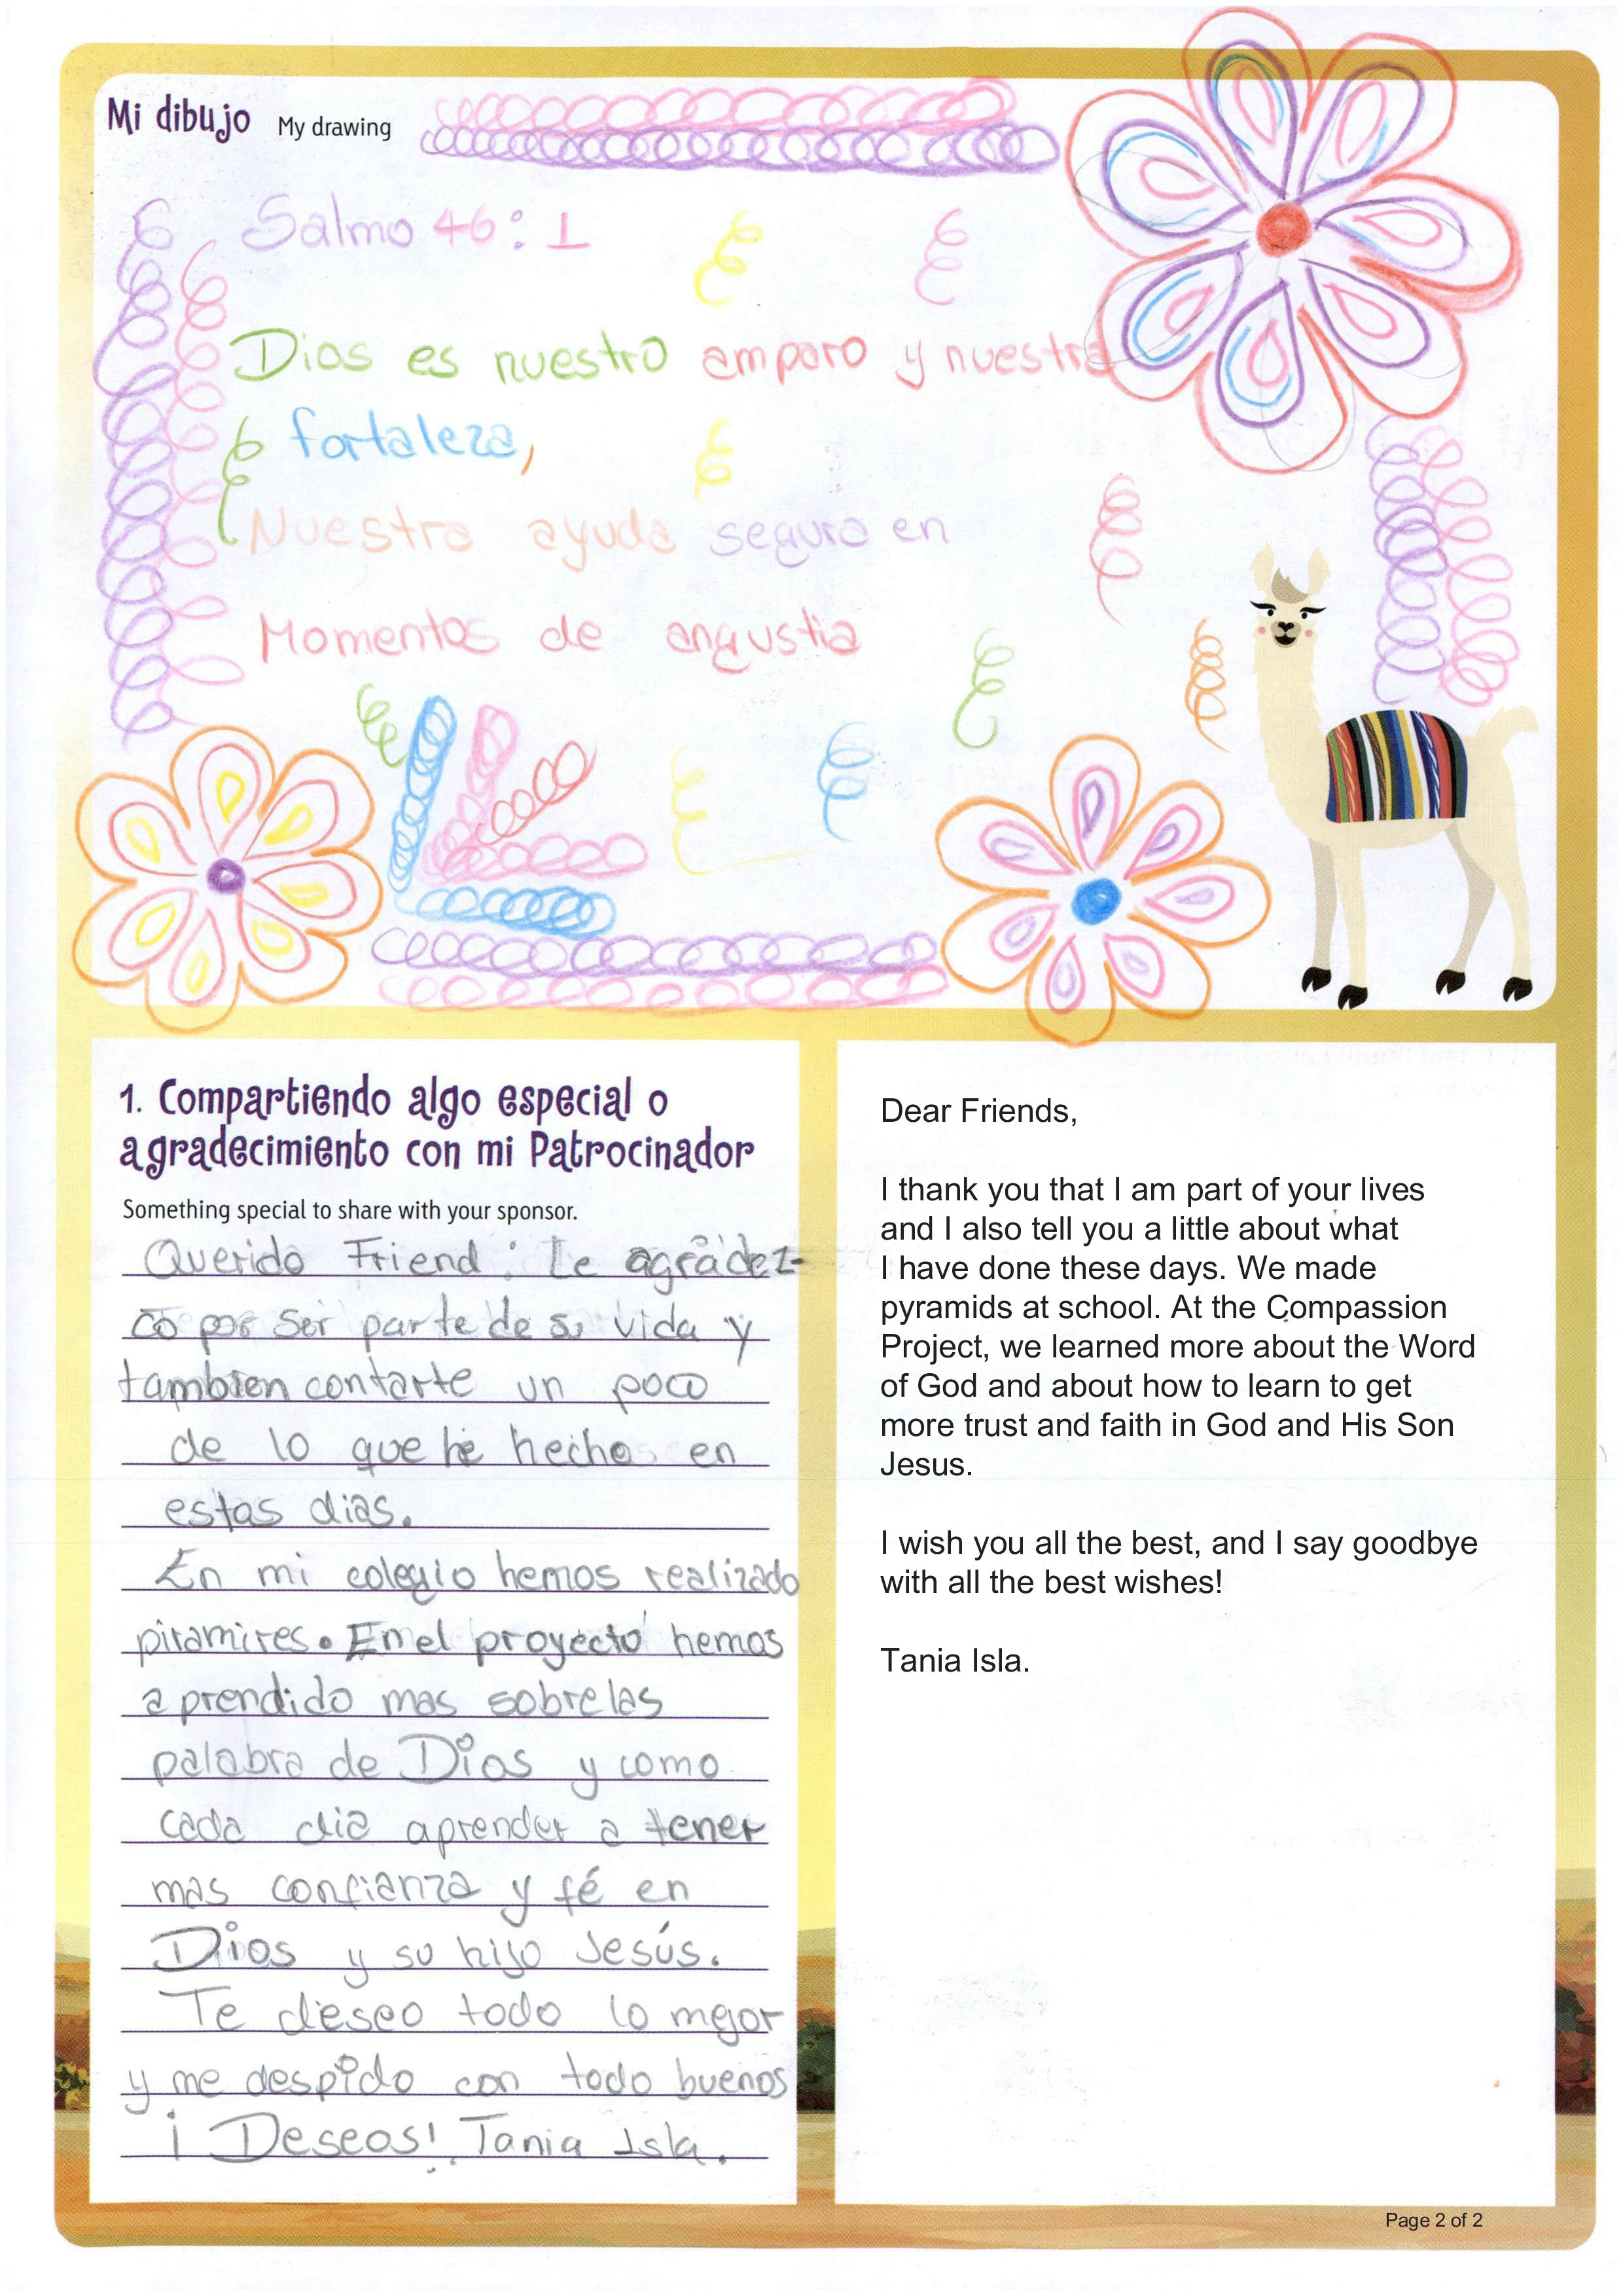 Mi dibujo My drawing
Salmo 46:1
Dios es nuestro amparo y nuestra
fortaleza,
Nuestra ayuda segura en
Momentos de angustia
1. Compartiendo algo especial o
agradecimiento con mi Patrocinador
Something special to share with your sponsor.
Querido Friend: Le agradez-
co por ser parte de su vida y
tambien contarte un poco
de lo que he hecho en
estas dias.
En mi colegio hemos realizado
piramires. En el proyecto hemos
aprendido mas sobre las
palabra de Dios y como
cada dia aprender a tener
mas confianza y fé en
Dios y su hijo Jesús.
Te deseo todo lo mejor
y me despido con todo buenos
¡Deseos! Tania Isla.
Dear Friends,
I thank you that I am part of your lives
and I also tell you a little about what
I have done these days. We made
pyramids at school. At the Compassion
Project, we learned more about the Word
of God and about how to learn to get
more trust and faith in God and His Son
Jesus.
I wish you all the best, and I say goodbye
with all the best wishes!
Tania Isla.
Page 2 of 2